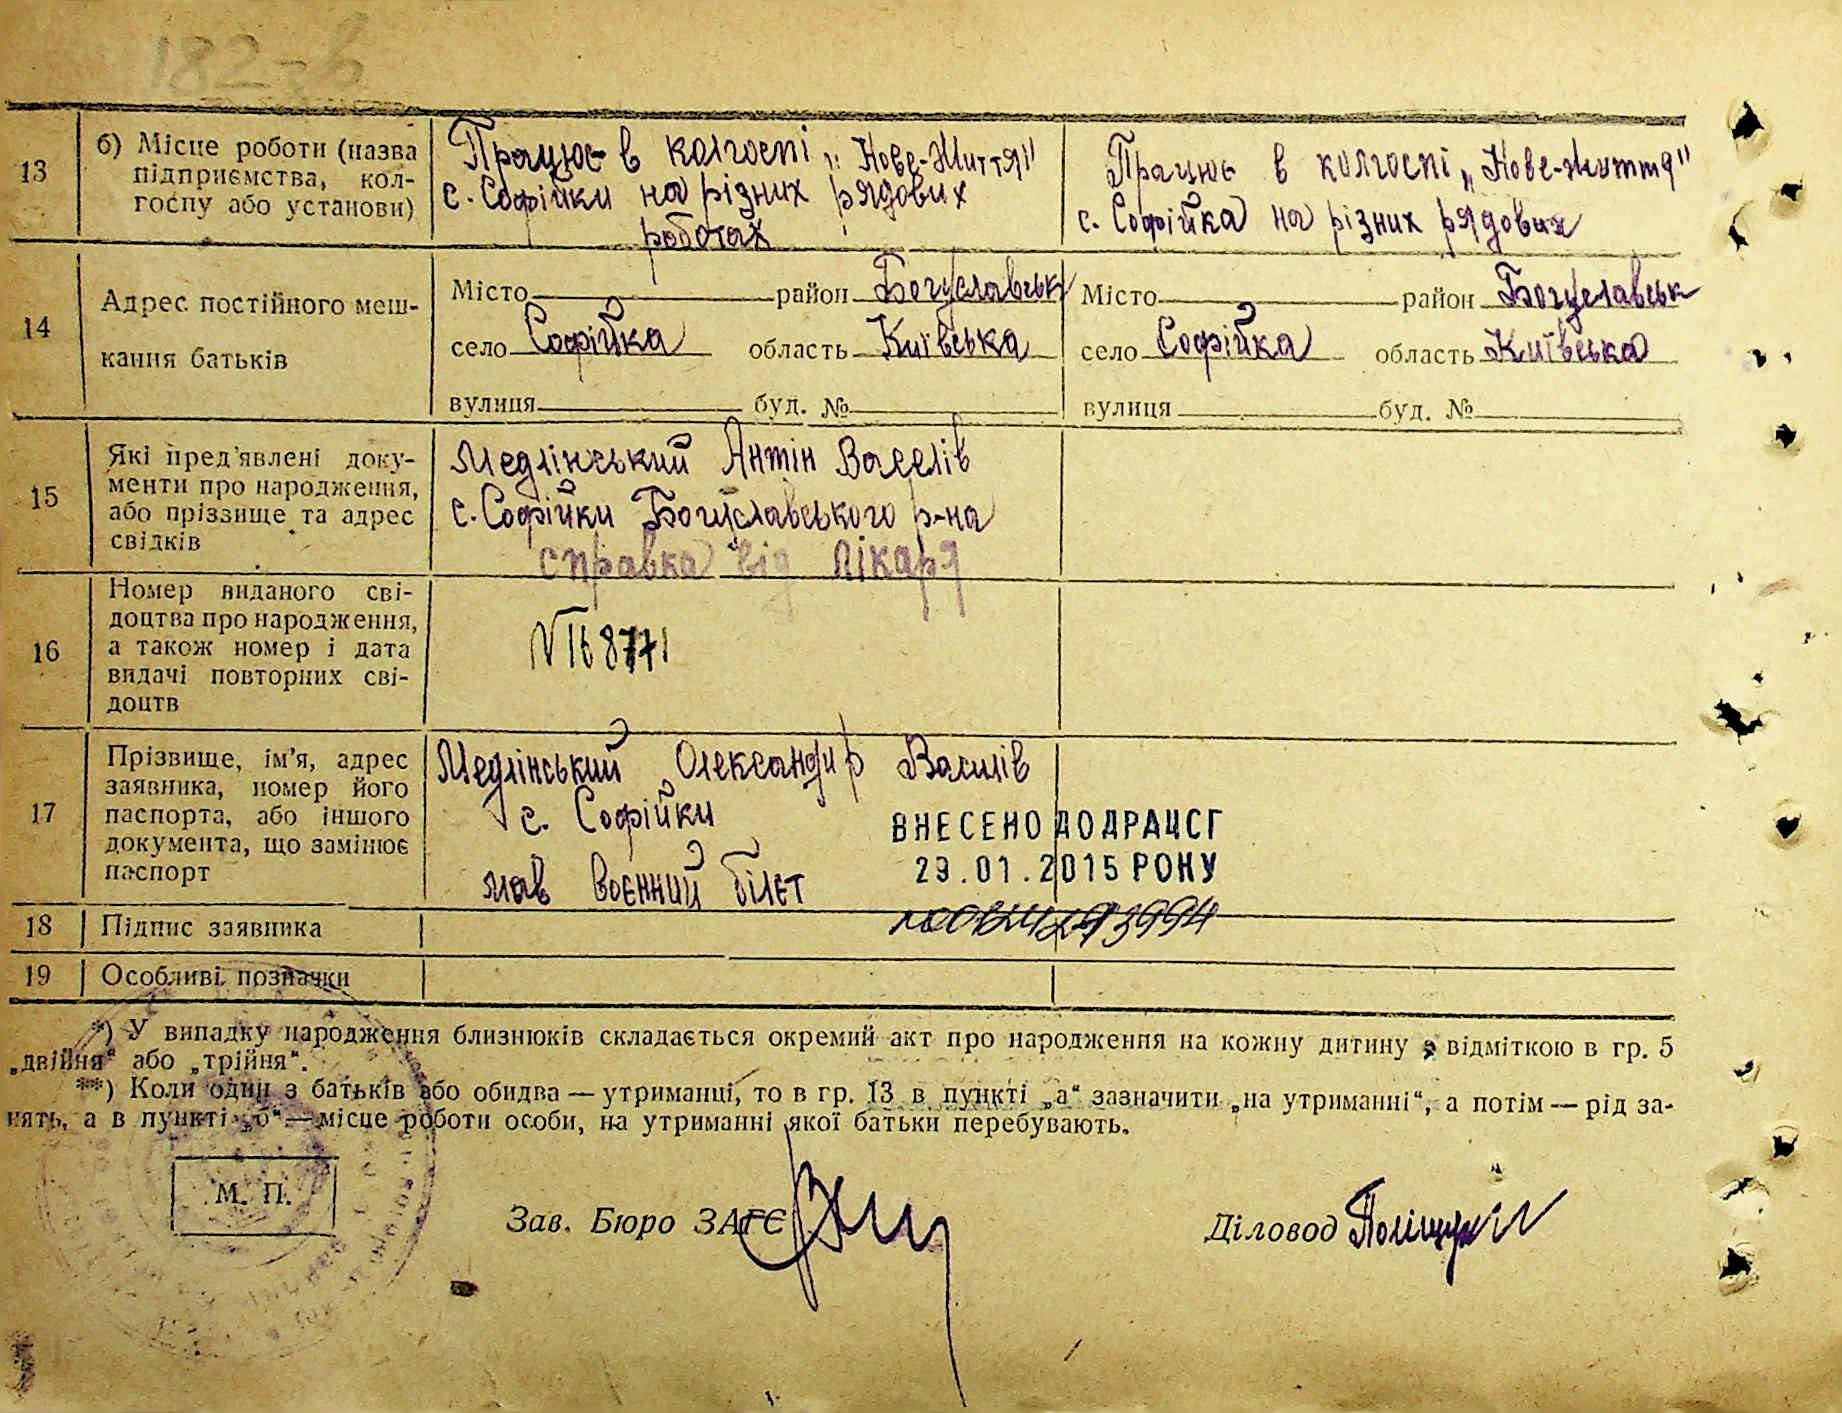 182-в
13
б) Місце роботи (назва
підприємства, кол-
госпу або установи)
Працює в колгоспі „Нове-Життя"
с. Софійки на різних рядових
роботах
Працює в колгоспі „Нове-життя"
с. Софійка на різних рядових
14
Адрес постійного меш-
кання батьків
Місто район Богуславськ
село Софійка область Київська
вулиця буд. №
Місто район Богуславськ
село Софійка область Київська
вулиця буд. №
15
Які пред'явлені доку-
менти про народження,
або прізвище та адрес
свідків
Медлінський Антін Васелів
с. Софійки Богуславського р-на
справка від лікаря
16
Номер виданого сві-
доцтва про народження,
а також номер і дата
видачі повторних сві-
доцтв
17
Прізвище, ім'я, адрес
заявника, номер його
паспорта, або іншого
документа, що замінює
паспорт
Медлінський Олександир Василів
с. Софійки
мав воєнний білєт
ВНЕСЕНО ДО ДРАЦСГ
29.01.2015 РОКУ
18 Підпис заявника
19 Особливі позначки
*) У випадку народження близнюків складається окремий акт про народження на кожну дитину з відміткою в гр. 5
„двійня" або „трійня".
**) Коли один з батьків або обидва — утриманці, то в гр. 13 в пункті „а" зазначити „на утриманні", а потім — рід за-
нять, а в пункті „б" — місце роботи особи, на утриманні якої батьки перебувають.
М. П.
Зав. Бюро ЗАГС
Діловод Поліщук